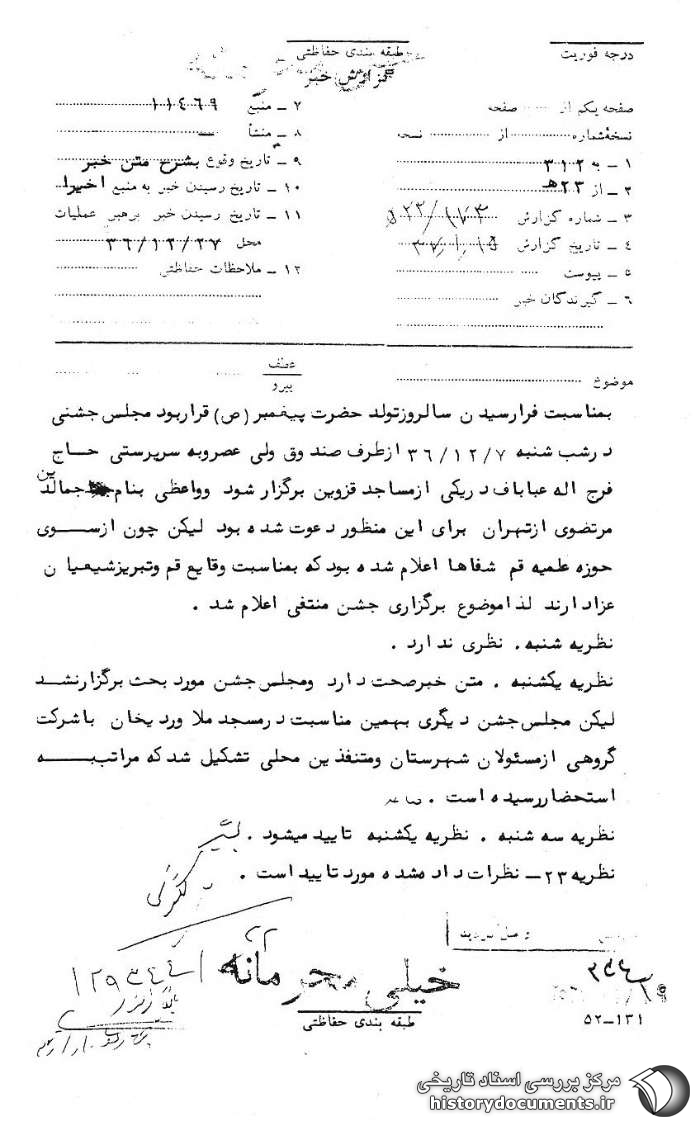 درجه فوریت
طبقه بندی حفاظتی
گزارش خبر
صفحه یکم از ........ صفحه
نسخهٔ شماره ........ از ........ نسخه
۱ ـ به ۳۱۲
۲ ـ از ۲۳ هـ
۳ ـ شماره گزارش
۴ ـ تاریخ گزارش
۵ ـ پیوست
۶ ـ گیرندگان خبر
۷ ـ منبع ۱۱۴۶۹
۸ ـ منشأ ـ
۹ ـ تاریخ وقوع بشرح متن خبر
۱۰ ـ تاریخ رسیدن خبر به منبع اخیرا
۱۱ ـ تاریخ رسیدن خبر برهبر عملیات
محل ۳۶/۱۲/۲۷
۱۲ ـ ملاحظات حفاظتی
موضوع
عطف
پیرو
بمناسبت فرارسیدن سالروزتولد حضرت پیغمبر (ص) قراربود مجلس جشنی
درشب شنبه ۳۶/۱۲/۷ ازطرف صندوق ولی عصروبه سرپرستی حاج
فرج اله عباباف دریکی ازمساجد قزوین برگزار شود وواعظی بنام جمالدین
مرتضوی ازتهران برای این منظور دعوت شده بود لیکن چون ازسوی
حوزه علمیه قم شفاها اعلام شده بودکه بمناسبت وقایع قم وتبریزشیعیان
عزادارند لذاموضوع برگزاری جشن منتفی اعلام شد .
نظریه شنبه. نظری ندارد .
نظریه یکشنبه . متن خبرصحت دارد ومجلس جشن مورد بحث برگزارنشد
لیکن مجلس جشن دیگری بهمین مناسبت درمسجد ملا وردیخان باشرکت
گروهی ازمسئولان شهرستان ومتنفذین محلی تشکیل شدکه مراتب به
استحضاررسیده است .
نظریه سه شنبه . نظریه یکشنبه تایید میشود .
نظریه ۲۳ـ نظرات داده شده مورد تایید است .
۲۲
خیلی محرمانه
طبقه بندی حفاظتی
۵۲-۱۳۱
مرکز بررسی اسناد تاریخی
historydocuments.ir